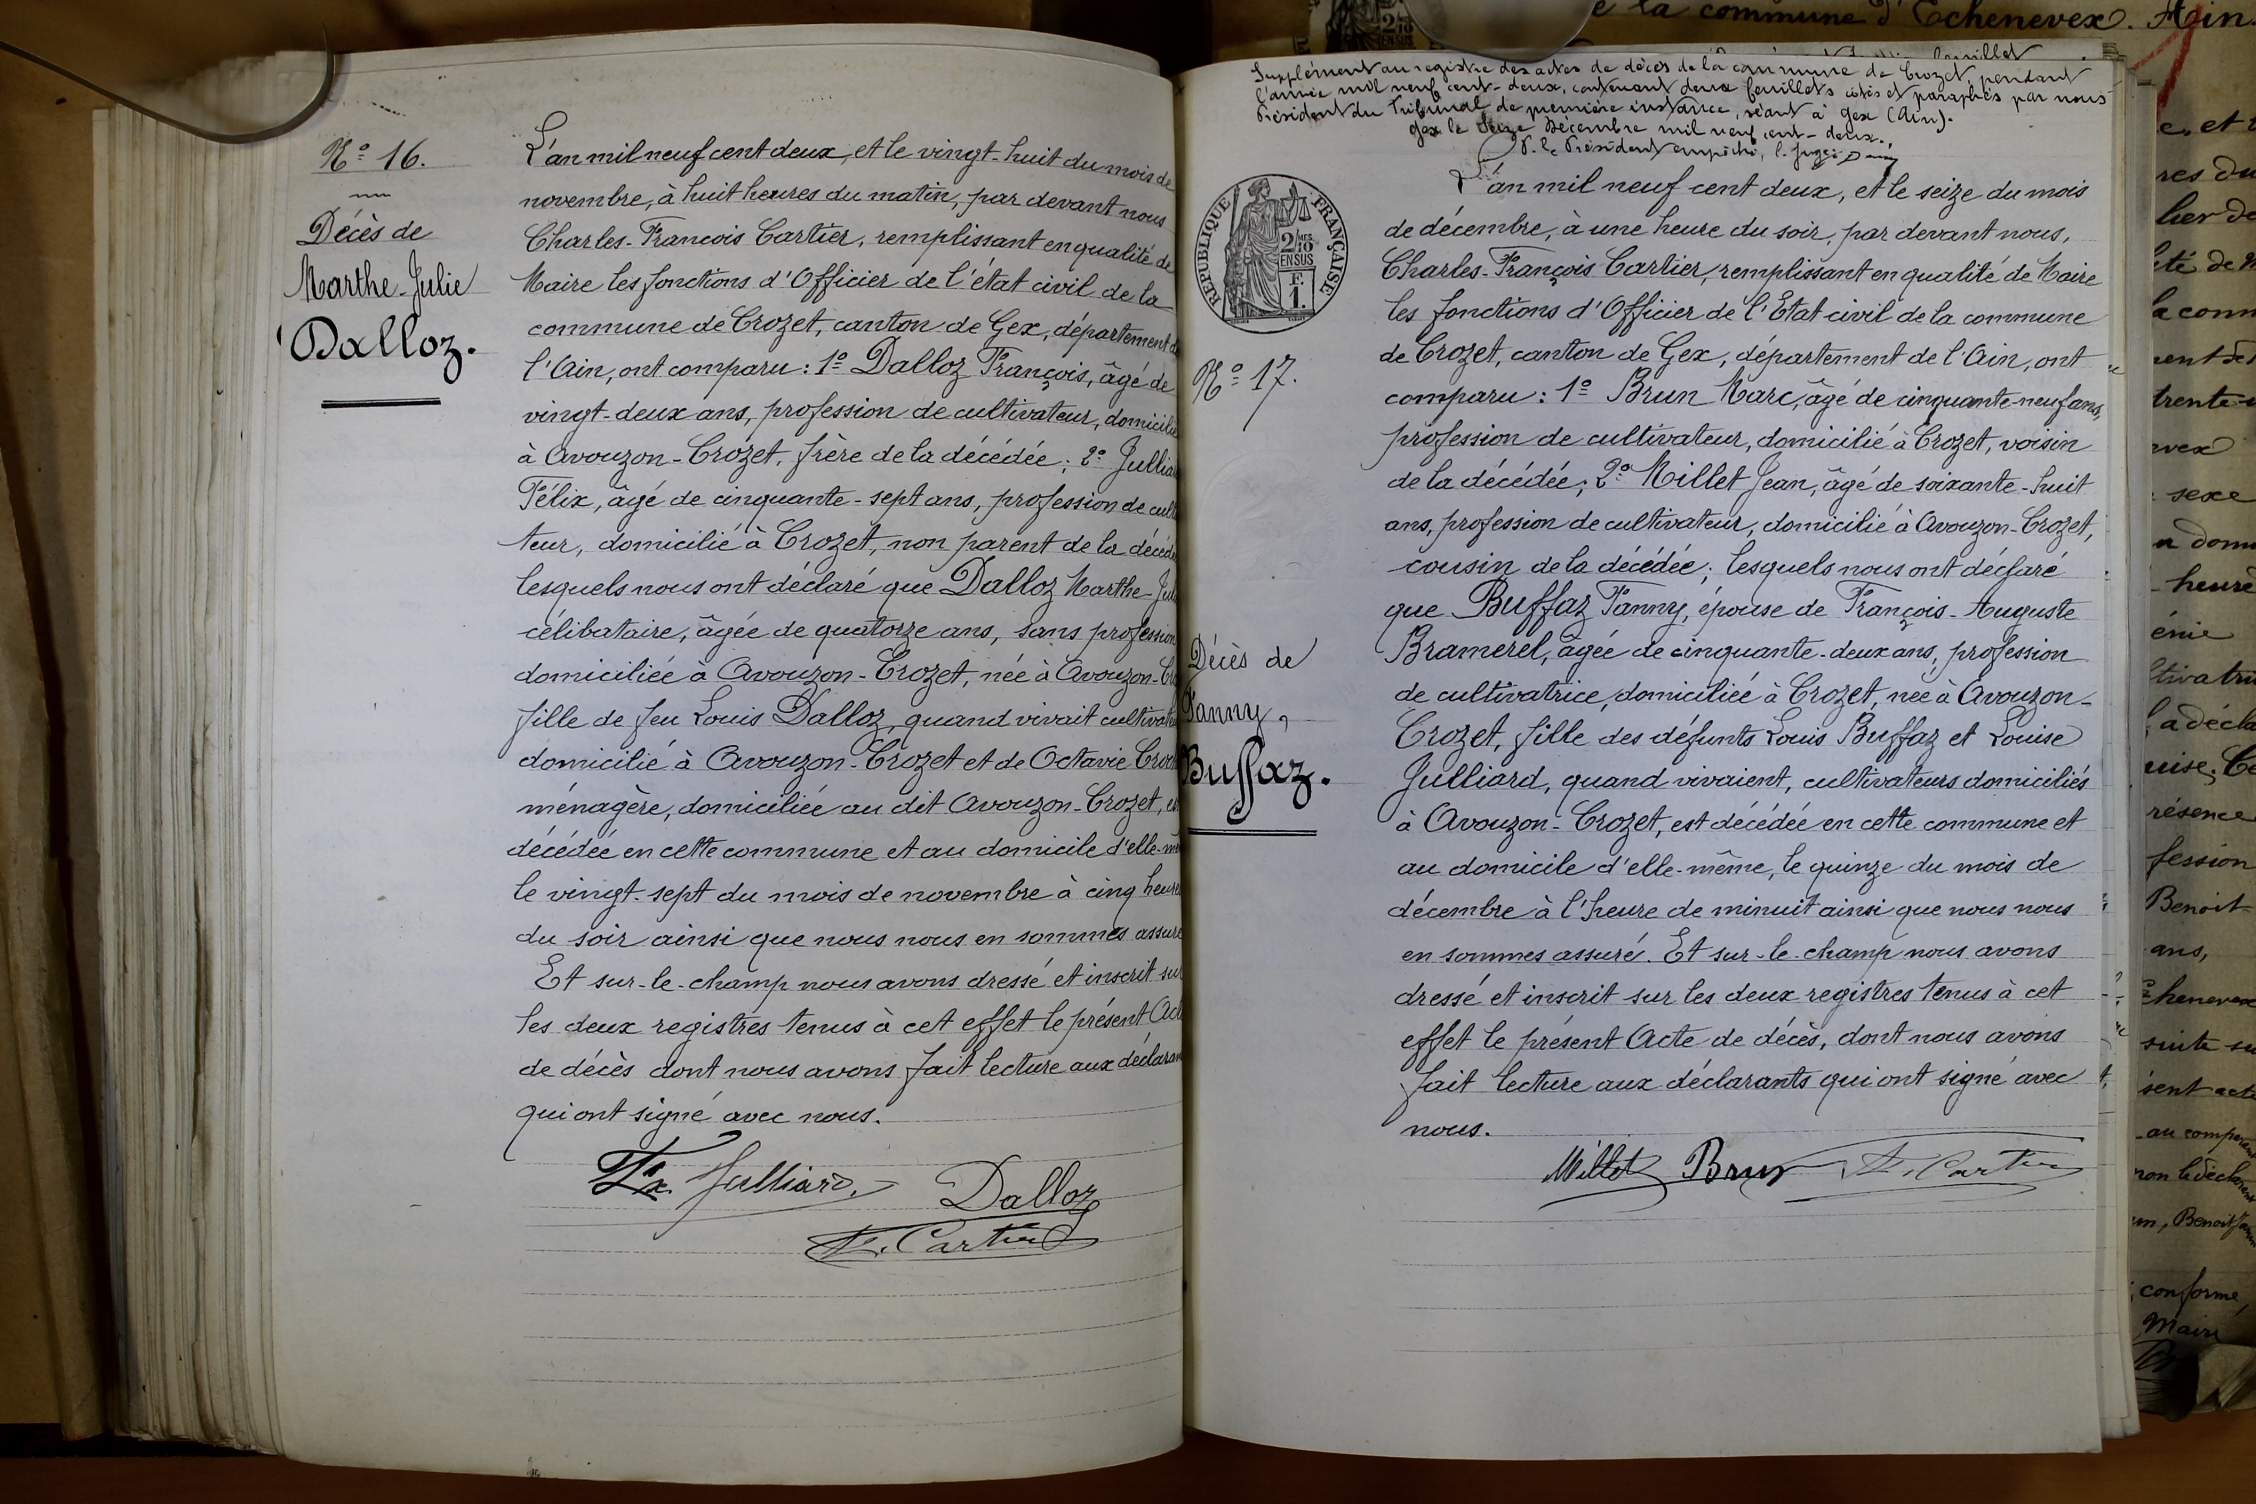 Nº 16.
Décès de
Marthe-Julie
Dalloz.
L'an mil neuf cent deux, et le vingt-huit du mois de
novembre, à huit heures du matin, par devant nous
Charles-Francois Cartier, remplissant en qualité de
Maire les fonctions d'Officier de l'état civil de la
commune de Crozet, canton de Gex, département de
l'Ain, ont comparu : 1º Dalloz François, âgé de
vingt-deux ans, profession de cultivateur, domicilié
à Avouzon-Crozet, frère de la décédée ; 2º Julliar
Félix, âgé de cinquante-sept ans, profession de cult
teur, domicilié à Crozet, non parent de la décéd
lesquels nous ont déclaré que Dalloz Marthe-Jul
célibataire, âgée de quatorze ans, sans profession
domiciliée à Avouzon-Crozet, née à Avouzon-C
fille de feu Louis Dalloz, quand vivait cultivat
domicilié à Avouzon-Crozet et de Octavie
ménagère, domiciliée au dit Avouzon-Crozet, es
décédée en cette commune et au domicile d'elle-mê
le vingt-sept du mois de novembre à cinq heure
du soir ainsi que nous nous en sommes assuré
Et sur-le-champ nous avons dressé et inscrit sur
les deux registres tenus à cet effet le présent Act
de décès dont nous avons fait lecture aux déclaran
qui ont signé avec nous.
Fx. Julliard. Dalloz
F. Cartier
e la commune d'Echenevex. Ain.
Supplément au registre des actes de décès de la commune de Crozet, pendant
l'année mil neuf cent-deux, contenant deux feuillets cotés et paraphés par nous
Président du Tribunal de première instance, séant à Gex (Ain).
Gex le Seize Décembre mil neuf cent-deux.
P. le Président empêché, le Juge :
RÉPUBLIQUE FRANÇAISE
2/10 MES
EN SUS
F.
1.
Nº 17.
Décès de
Fanny,
Buffaz.
L'an mil neuf cent deux, et le seize du mois
de décembre, à une heure du soir, par devant nous,
Charles-François Cartier, remplissant en qualité de Maire
les fonctions d'Officier de l'Etat-civil de la commune
de Crozet, canton de Gex, département de l'Ain, ont
comparu : 1º Brun Marc, âgé de cinquante-neuf ans,
profession de cultivateur, domicilié à Crozet, voisin
de la décédée ; 2º Millet Jean, âgé de soixante-huit
ans, profession de cultivateur, domicilié à Avouzon-Crozet,
cousin de la décédée ; lesquels nous ont déclaré
que Buffaz Fanny, épouse de François-Auguste
Bramerel, âgée de cinquante-deux ans, profession
de cultivatrice, domiciliée à Crozet, née à Avouzon-
Crozet, fille des défunts Louis Buffaz et Louise
Julliard, quand vivaient, cultivateurs domiciliés
à Avouzon-Crozet, est décédée en cette commune et
au domicile d'elle-même, le quinze du mois de
décembre à l'heure de minuit ainsi que nous nous
en sommes assuré. Et sur-le-champ nous avons
dressé et inscrit sur les deux registres tenus à cet
effet le présent Acte de décès, dont nous avons
fait lecture aux déclarants qui ont signé avec
nous.
Millet Brun F. Cartier
sexe
heure
énie
résence
fession
Benoit
ans,
suite su
sent acte
conforme,
Maire